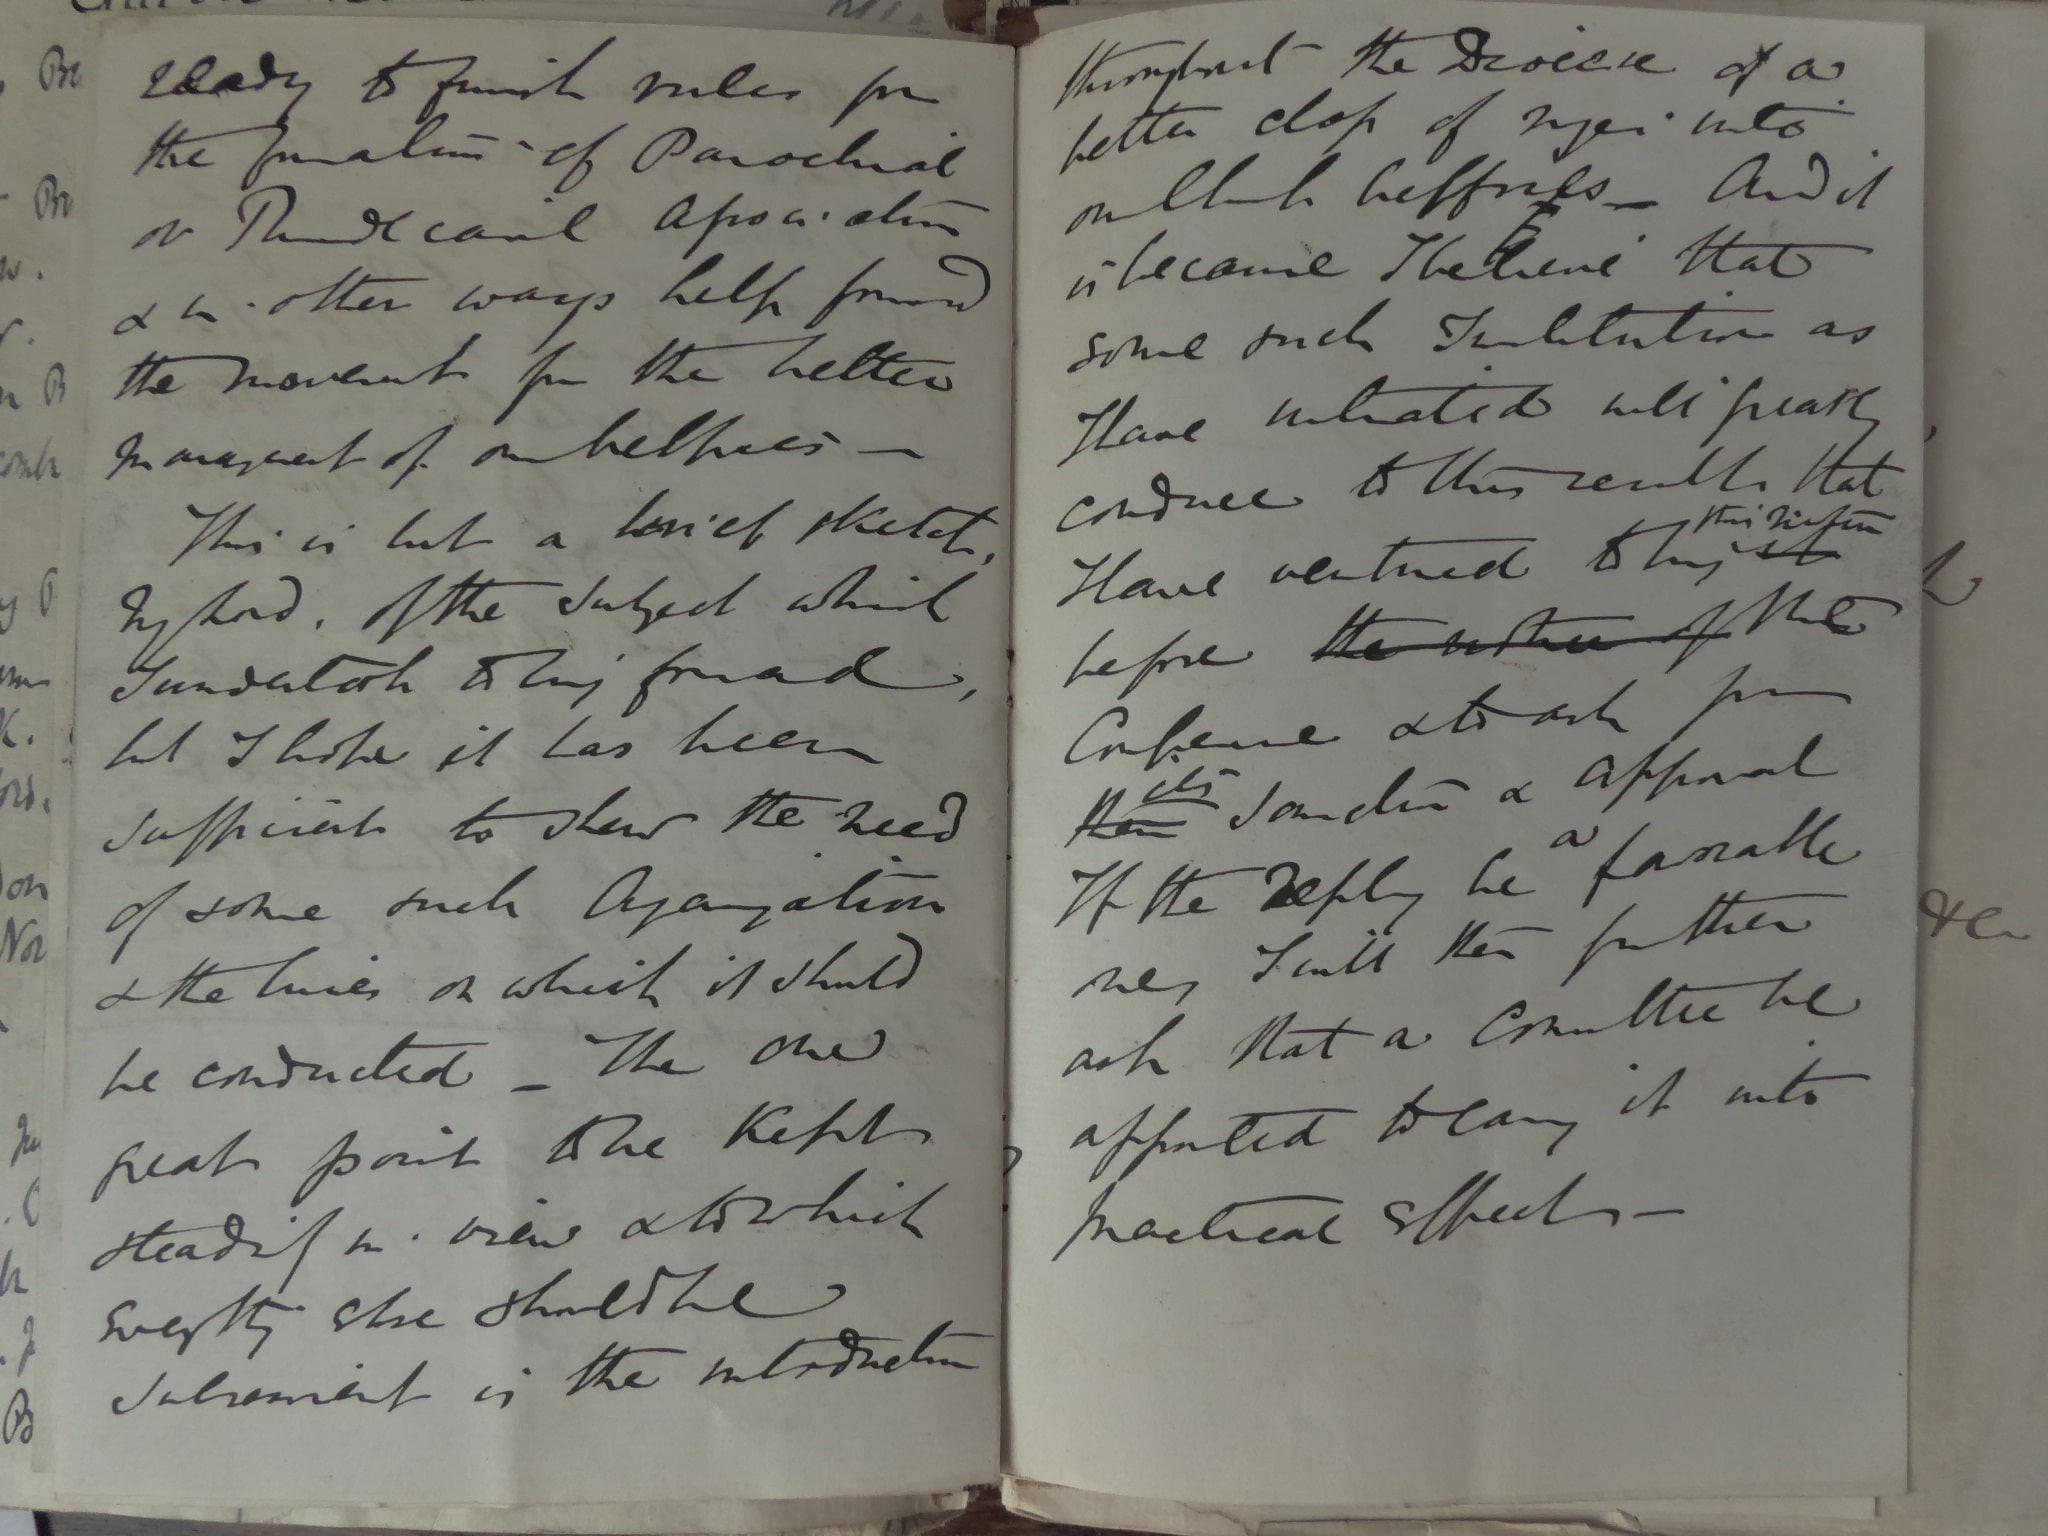 ready to furnish rules for
the formation of Parochial
or Ruridecanal Association
& in other ways help forward
the movement for the better
management of our belfries –
This is but a brief sketch,
My Lord, of the subject which
I undertook to bring forward,
but I hope it has been
sufficient to shew the need
of some such Organization
& the lines on which it should
be conducted – The one
great point to be kept
steadily in view & to which
everything else should be
subservient is the introduction
throughout the Diocese of a
better class of ringers into
our Church belfries – And it
is because I believe that
some such Institution as
I have indicated will greatly
conduce to this result that
I have ventured to bring it this before
before the notice of this
Conference & to ask for
their its sanction & approval
If the reply be a favorable
one, I will then further
ask that a Committee be
appointed to carry it into
practical effect –